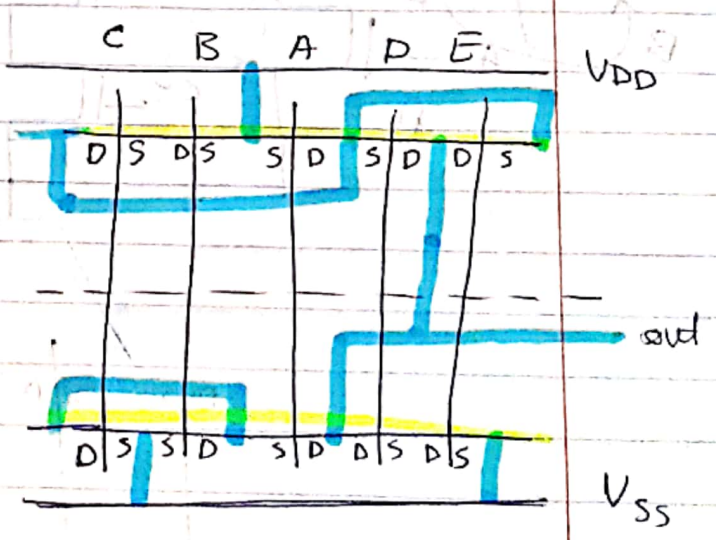 C B A D E.
VDD
D S D S S D S D D S
out
D S S D S D D S D S
VSS